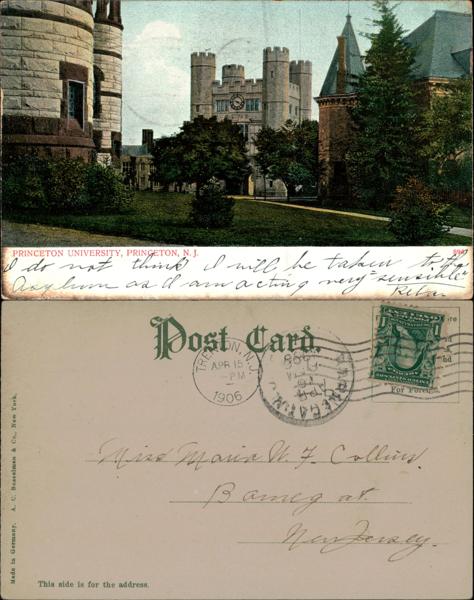 PRINCETON UNIVERSITY, PRINCETON, N. J.
I do not think I will be taken to the
Asylum as I am acting very "sensible"
Post Card.
TRENTON, N.J.
APR 15
-PM
1906
BARNEGAT
Miss Maria W. F. Collins.
Barnegat.
New Jersey.
Made in Germany. A. C. Bosselman & Co., New York.
This side is for the address.